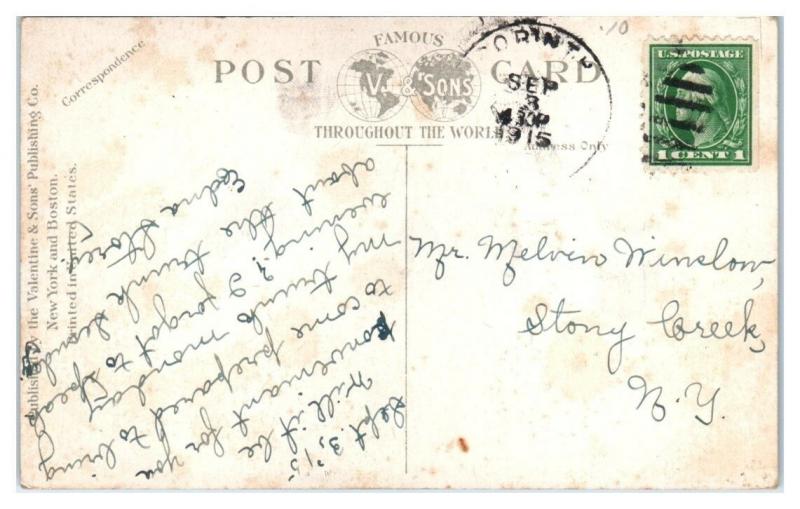 Correspondence
FAMOUS
POST CARD
V. & SONS
THROUGHOUT THE WORLD
Address Only
Published by the Valentine & Sons' Publishing Co.
New York and Boston.
Printed in United States.
CORINTH
SEP
3
4 30P
1915
10
U.S. POSTAGE
1 CENT 1
Mr. Melvin Winslow,
Stony Creek,
N. Y.
Sept 3, '15
Will it be for you
convenient prepared to bring
to come monday
my trunk to speak
evening ? I forgot
about the trunk
Edna Story